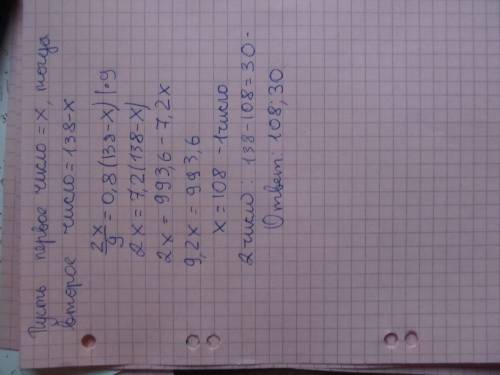 Пусть первое число = х, тогда
второе число = 138-х
2х/9 = 0,8(138-х) |·9
2х = 7,2(138-х)
2х = 993,6 - 7,2х
9,2х = 993,6
х = 108 - 1 число
2 число: 138-108 = 30 -
Ответ: 108; 30